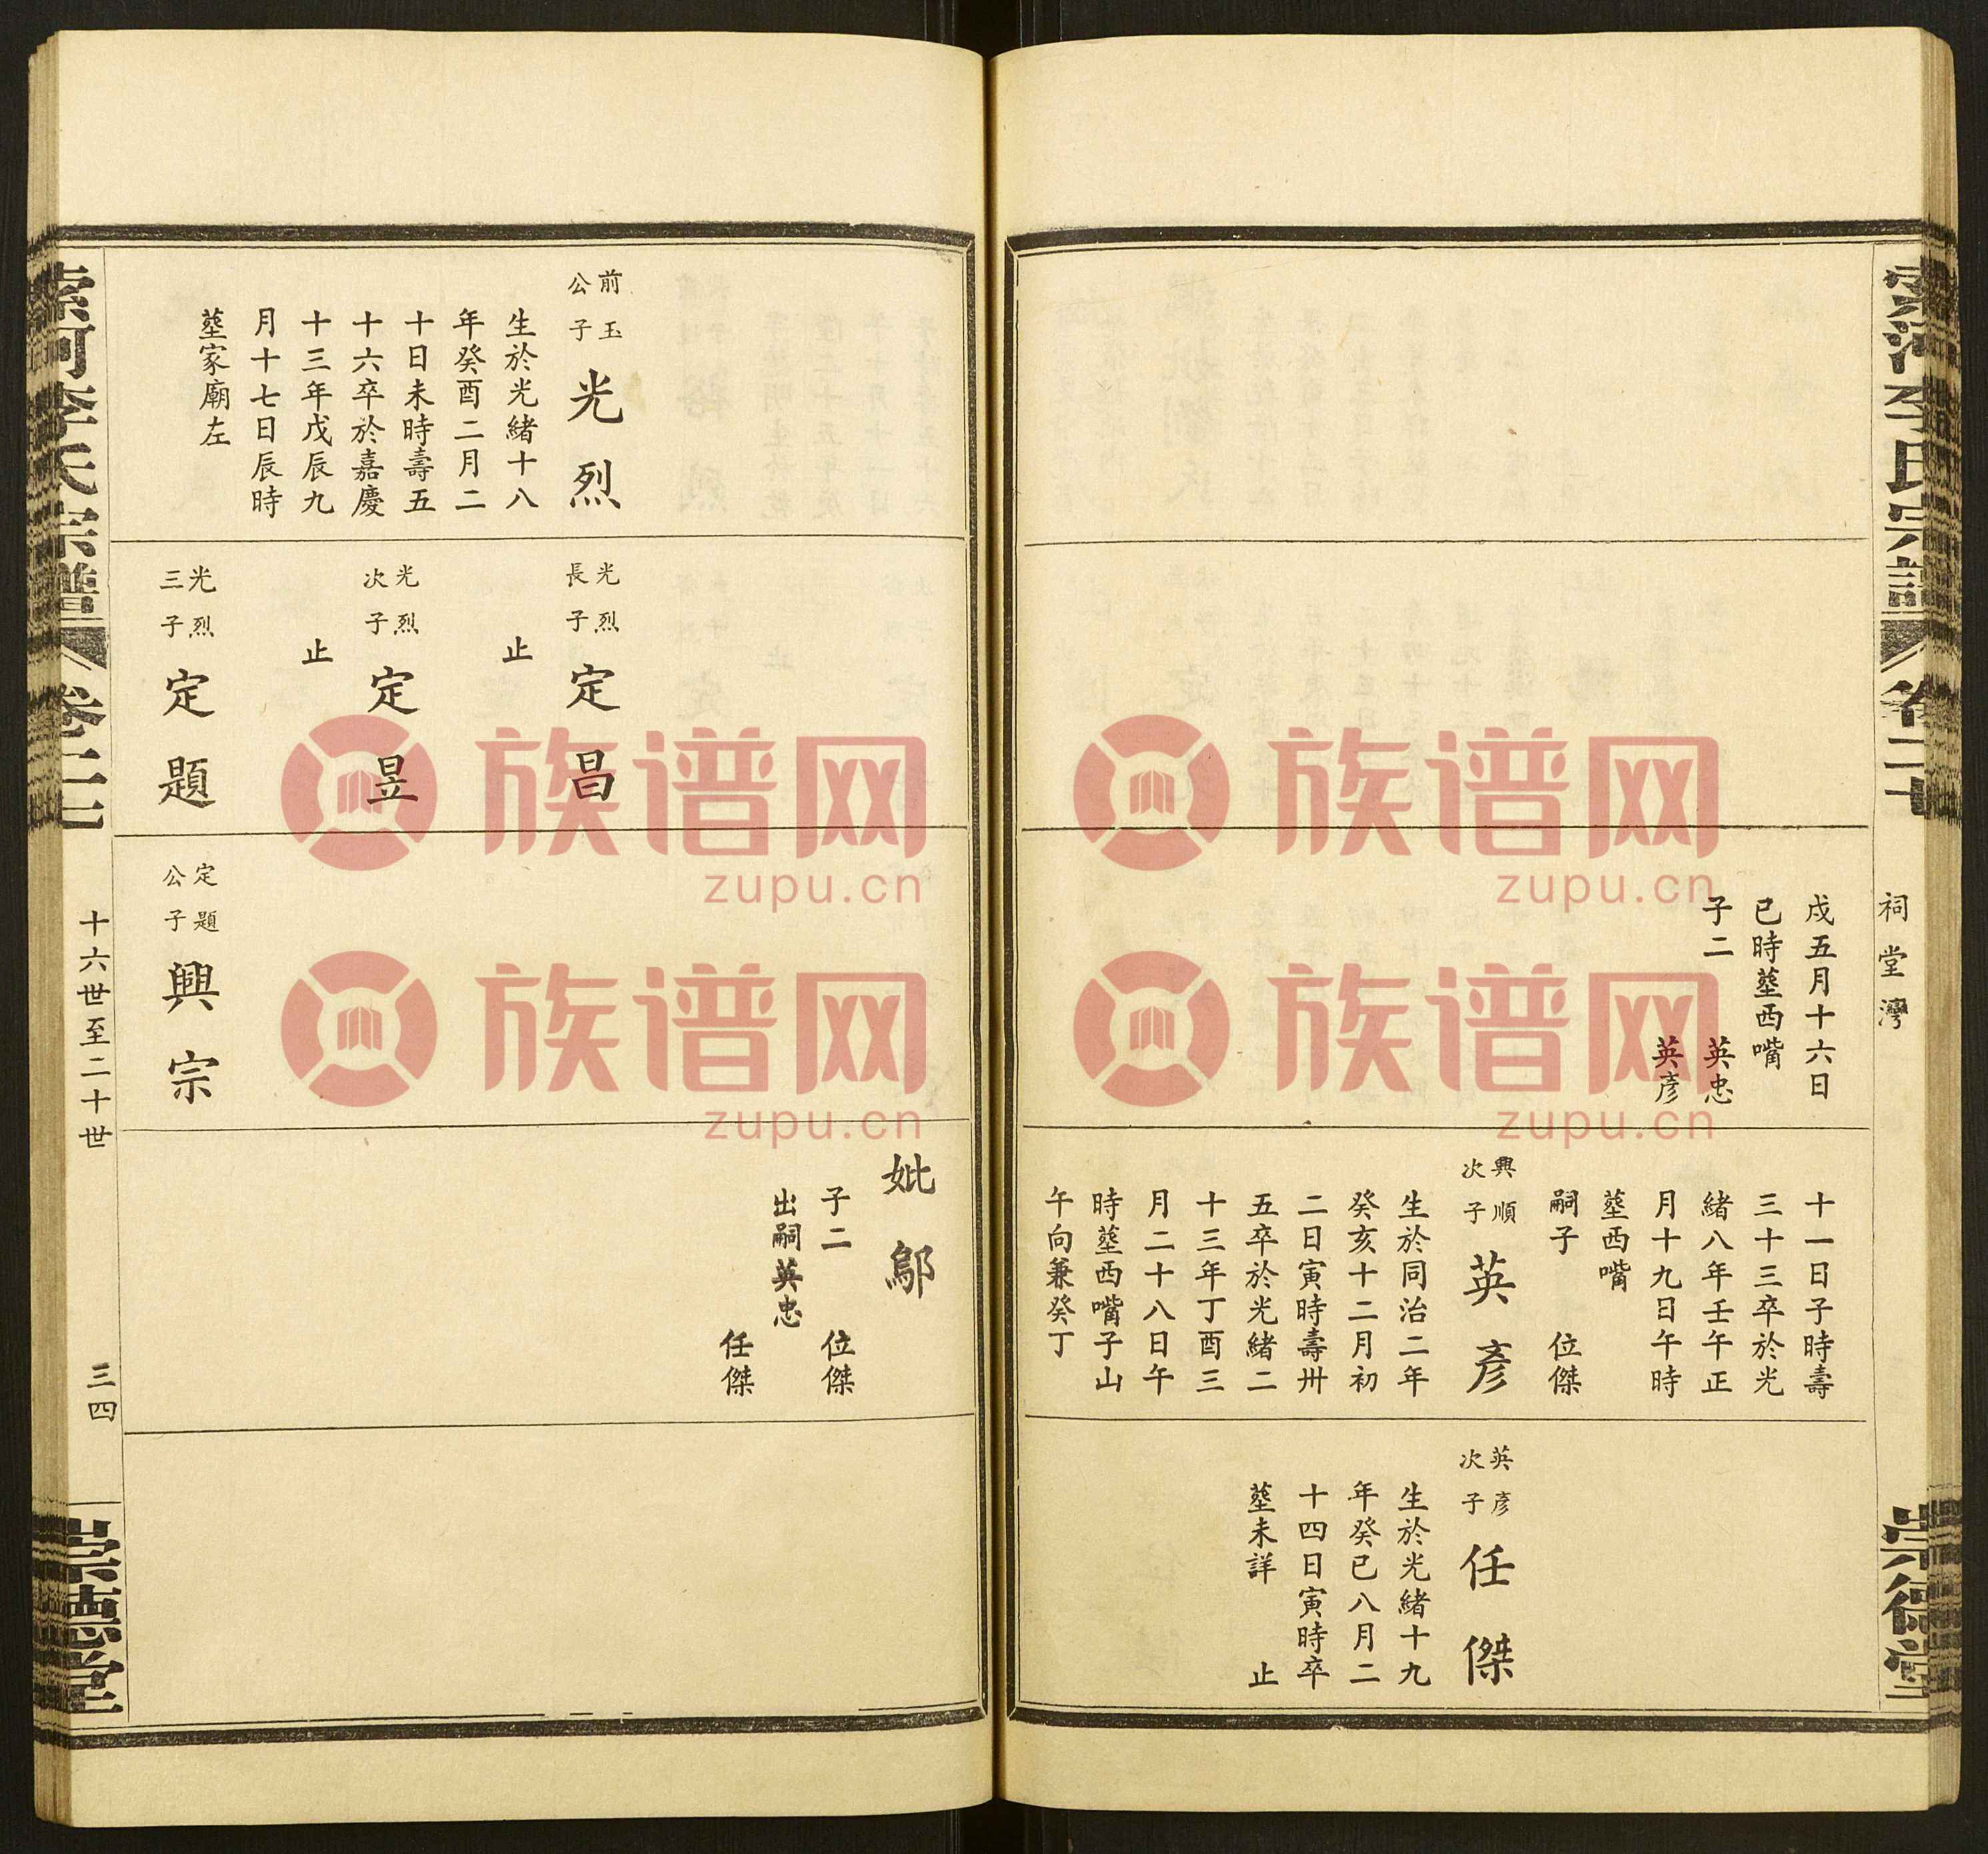 祠堂灣
戌五月十六日
巳時塟西嘴
子二 英忠
英彥
十一日子時壽
三十三卒於光
緒八年壬午正
月十九日午時
塟西嘴
嗣子 位傑
興順
次子
英彥
生於同治二年
癸亥十二月初
二日寅時壽卅
五卒於光緒二
十三年丁酉三
月二十八日午
時塟西嘴子山
午向兼癸丁
英彥
次子
任傑
生於光緒十九
年癸巳八月二
十四日寅時卒
塟未詳 止
崇德堂
前玉
公子
光烈
生於光緒十八
年癸酉二月二
十日未時壽五
十六卒於嘉慶
十三年戊辰九
月十七日辰時
塟家廟左
光烈
長子
定昌
止
光烈
次子
定昱
止
光烈
三子
定題
定題
公子
興宗
妣鄔
子二 位傑
出嗣英忠
任傑
李氏宗譜
卷二十
十六世至二十世
三四
崇德堂
族谱网
zupu.cn
族谱网
zupu.cn
族谱网
zupu.cn
族谱网
zupu.cn